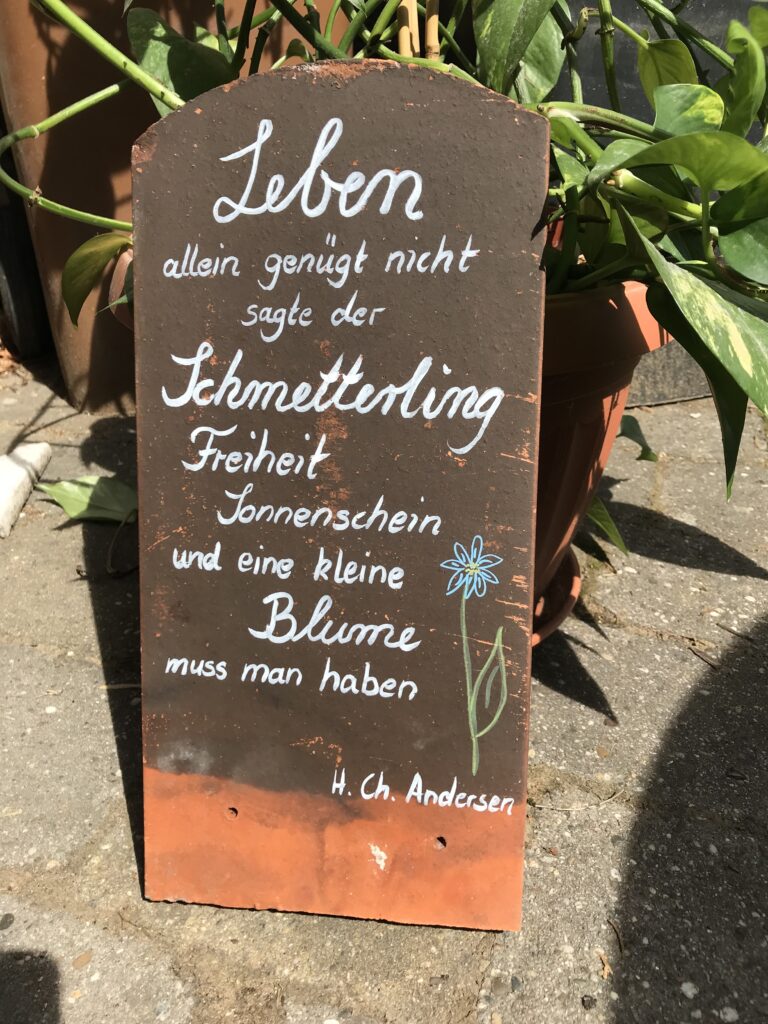 Leben
allein genügt nicht
sagte der
Schmetterling
Freiheit
Sonnenschein
und eine kleine
Blume
muss man haben
H. Ch. Andersen